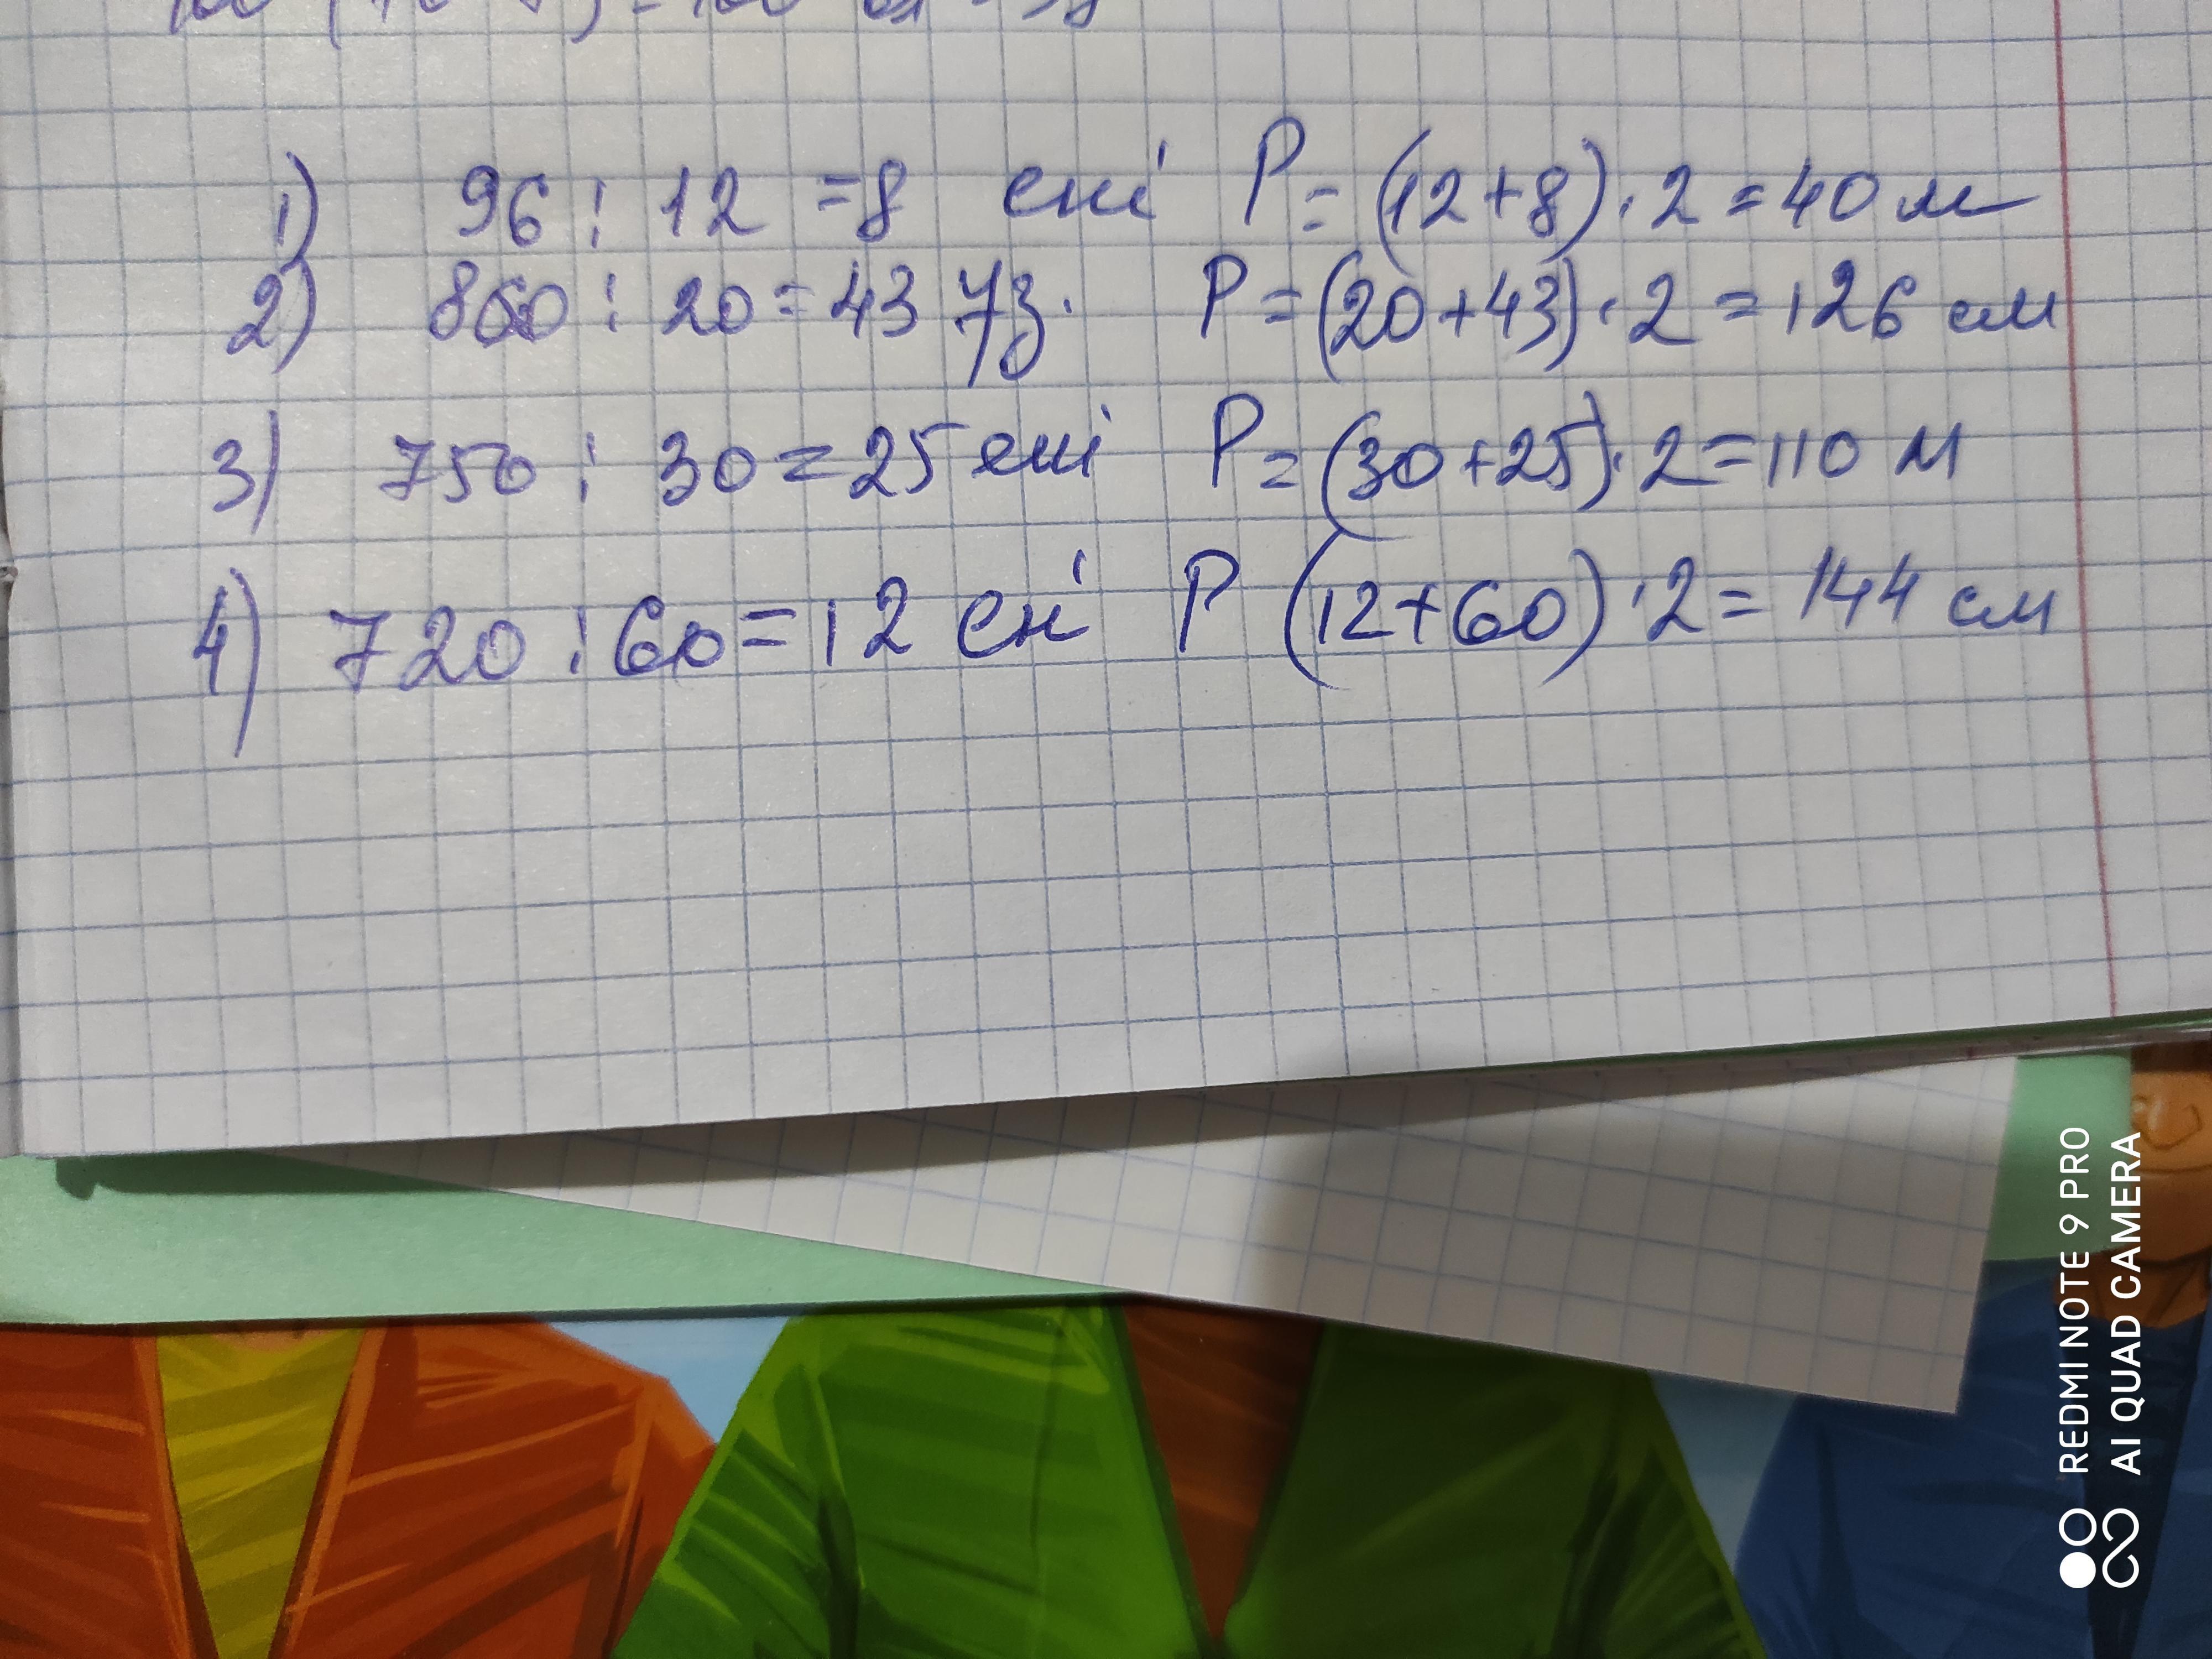 1) 96 : 12 = 8 ені P = (12+8) · 2 = 40 м
2) 860 : 20 = 43 ұз. P = (20+43) · 2 = 126 см
3) 750 : 30 = 25 ені P = (30+25) · 2 = 110 м
4) 720 : 60 = 12 ені P (12+60) · 2 = 144 см
REDMI NOTE 9 PRO
AI QUAD CAMERA